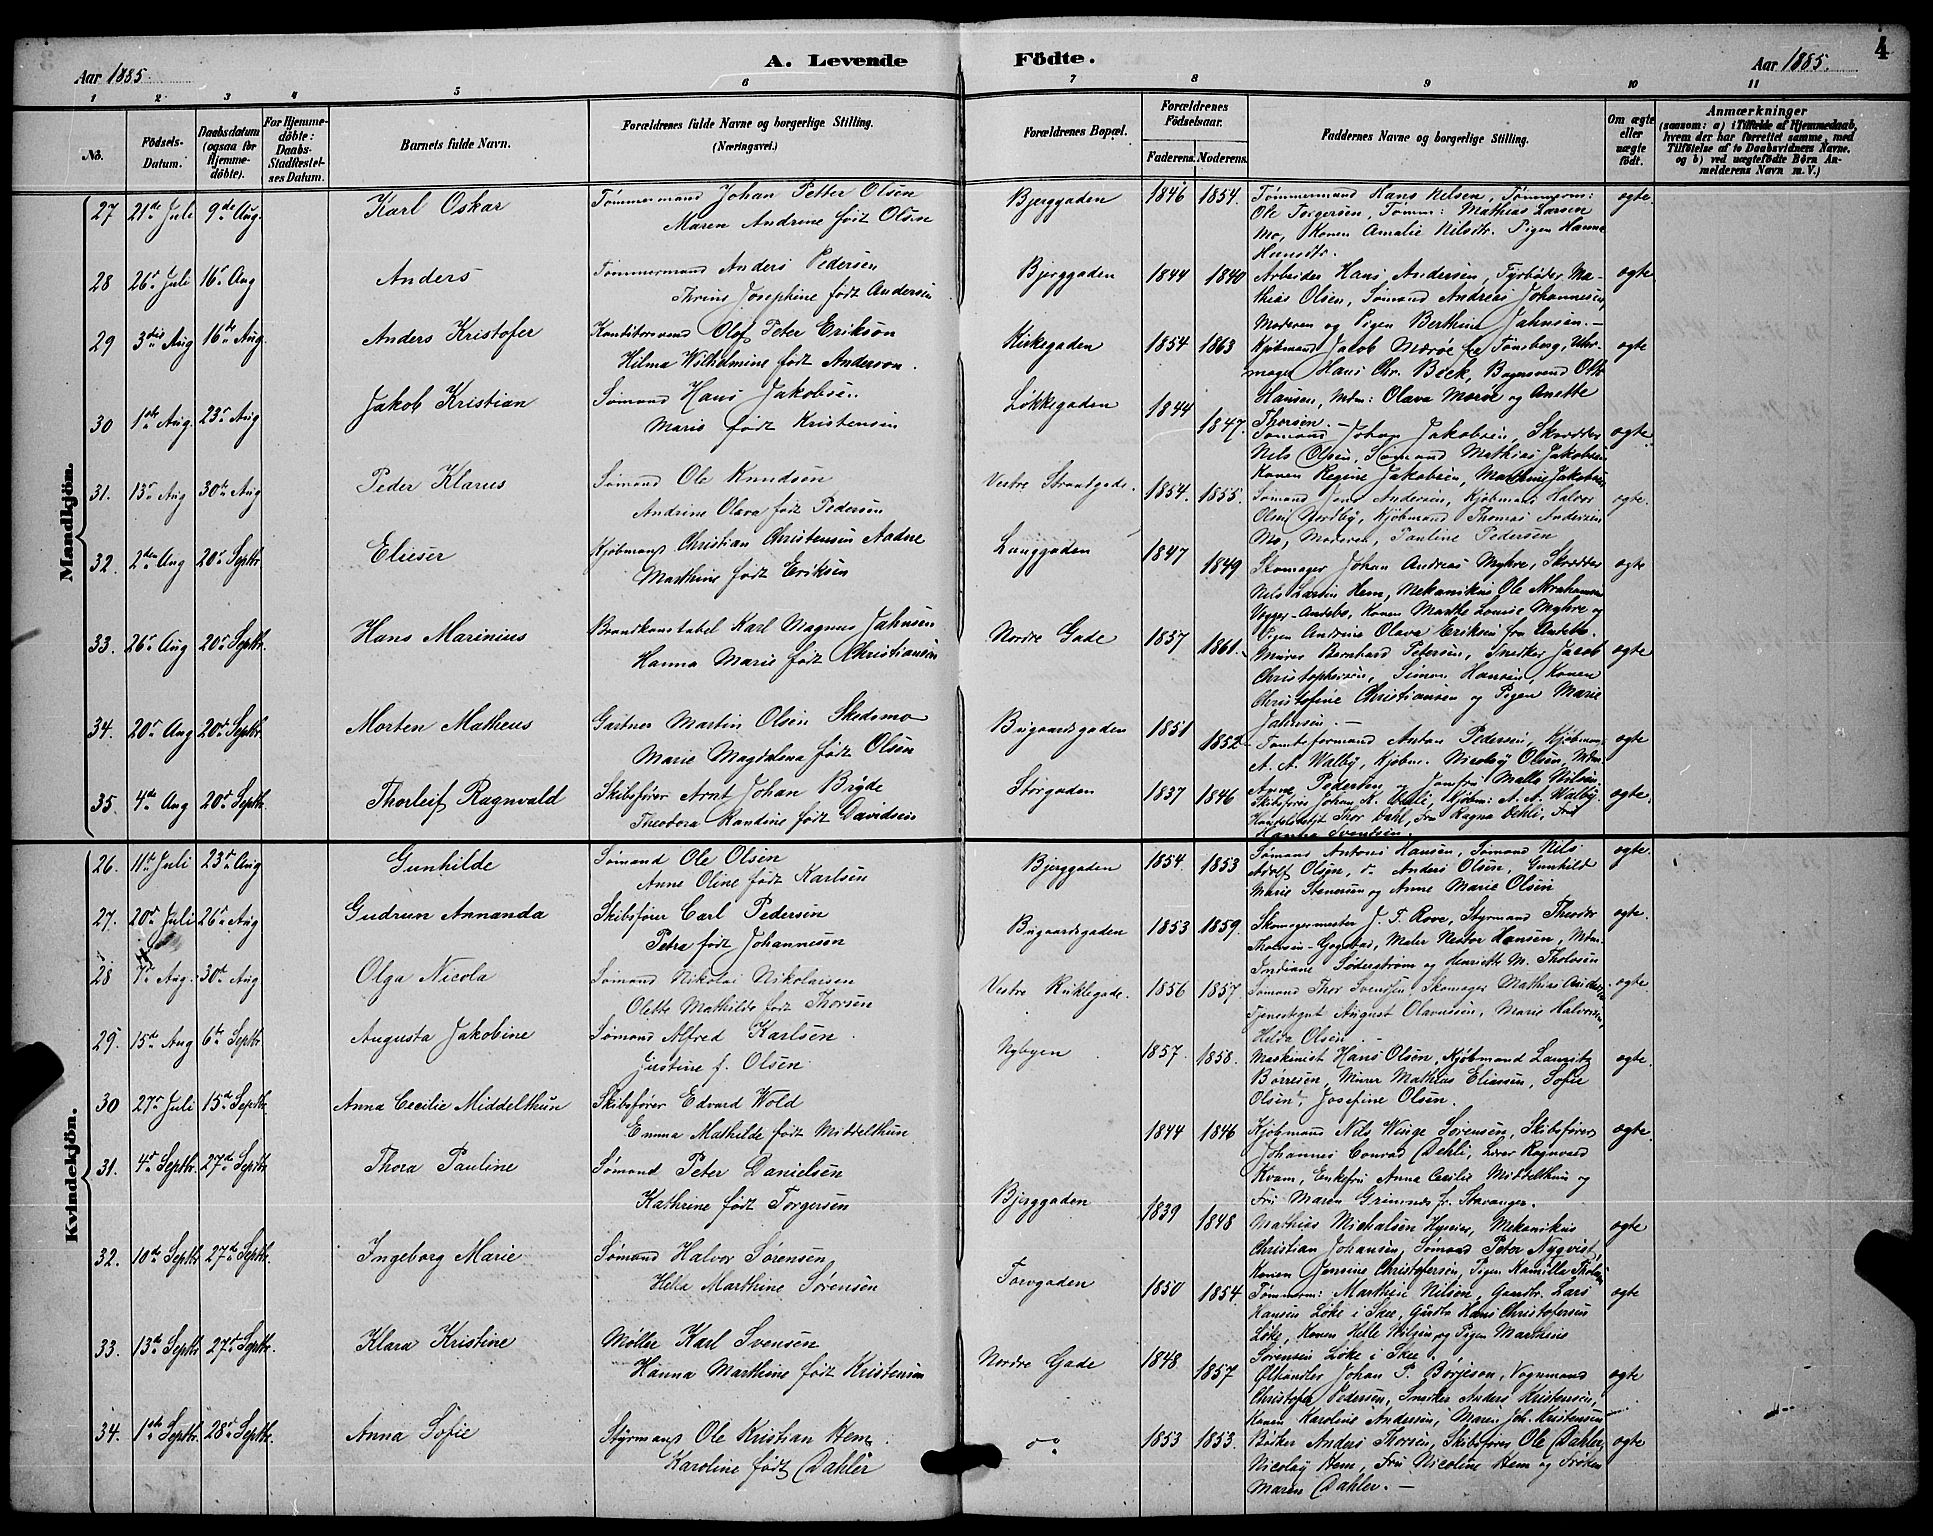 Aar 1885.
A. Levende Födte.
Aar 1885.
4
1 2 3 4 5 6 7 8 9 10 11
No.
Födsels-Datum.
Daabsdatum (ogsaa før Hjemme-döbte).
For Hjemme-döbte: Daabs-Stadfæstel-ses Datum.
Barnets fulde Navn.
Forældrenes fulde Navne og borgerlige Stilling.
(Næringsvei.)
Forældrenes Bopæl.
Forældrenes Födselsaar.
Faderens. Moderens.
Faddernes Navne og borgerlige Stilling.
Om ægte eller uægte födt.
Anmærkninger
(saasom: a) i Tilfælde af Hjemmedaab, hvem der har forrettet samme, med Tilföielse af to Daabsvidners Navne, og b) ved uægtefödte Börn Anmelderens Navn m. V.)
Mandkjön.
27 21de Juli 9de Aug. Karl Oskar
Tømmermand Johan Petter Olsen
Maren Andrine født Olsen
Bjerggaden 1846 1854.
Tømmermand Hans Nilsen, Tømmerm:
Ole Torgersen, Tømm: Mathias Larsen
Mo, Konen Amalie Nilsdtr. Pigen Hanna
Hansdtr.
ægte.
28 26r Juli 16r Aug Anders
Tømmermand Anders Pedersen
Josephine født Andersen
Bjerggaden 1844 1840
Arbeider Hans Andersen, Fyrbøder Ma-
thias Olsen, Sømand Andreas Johannesen
Moderen og Pigen Berthine Jahnsen.-
ægte
29 3die Aug 16de Aug. Anders Kristofer
Konditorsvend Olof Peter Erikson
Hilma Wilhelmine født Anderson.
Kirkegaden 1854 1863
Kjøbmand Jacob Mærøe fra Tønsberg, Uhr-
mager Hans Chr. Beck, Bagersvend Ole
Hansen, Mdm: Olava Mærøe og Anette
Thorsen.-
ægte
30 1ste Aug. 23r Aug Jakob Kristian
Sømand Hans Jakobsen
Marie født Kristensen
Løkkegaden 1844 1847.
Sømand Johan Jakobsen, Skrædder
Nils Olsen, Sømand Mathias Jakobsen
Konen Regine Jakobsen, Mathine Jakobsen
ægte.
31. 13r Aug 30te Aug Peder Klarus
Sømand Ole Knudsen
Andrine Olava født Pedersen
Vestre Strandgade. 1854. 1855.
Sømand Andersen, Kjøbmand Halvor
Olsen Nordby, Kjøbmand Thomas Andersen
Mo, Moderen, Pauline Pedersen
ægte.
32. 2den Aug 20r Septbr Elieser
Kjøbmand Christian Christensen Aadne
Marthine født Eriksen
Langgaden 1847 1849
Skomager Johan Andreas Myhre, Skrædder
Nils Larsen Hem, Mekanikus Ole Abrahamsen
Andebo, Konen Marthe Louise Myhre og
Pigen Andrine Olava Eriksen fra Andebo.
ægte
33. 26r Aug 20r Septbr. Hans Marinius
Brandkonstabel Karl Magnus Jahnsen
Hanna Marie født Christiansen
Nordre Gade 1837 1861.
Murer Bernhard Petersen, Snedker Jacob
Christophersen, Simon Hansen, Konen
Christofine Christiansen og Pigen Marie
Jahnsen.-
ægte
34. 20r Aug 20r Septbr Morten Matheus
Gartner Martin Olsen Skedsmo
Marie Magdalena født Olsen
Bugaardsgaden 1851 1852
Tomteformand Anton Pedersen, Kjøbm:
A. A. Walby, Kjøbm. Nicolay Olsen, Mdm.
Anne Pedersen, Jomfru Malla Nilsen
ægte
35. 4de Aug 20r Septbr Thorleif Ragnvald
Skibsfører Arnt Johan Bryde
Theodora Randine født Davidsen
Storgaden 1837 1846
Skibsfører Johan K. Dehli, Kjøbm: A. A. Walby.
Thor Dahl, Fru Ragna Dehli, Frk
Hanna Svendsen.
ægte.
Kvindekjön.
26. 11te Juli 23r Aug Gunhilde
Sømand Ole Olsen
Anne Oline født Karlsen
Bjerggaden 1854. 1853
Sømand Antoni Hansen, Sømand Nils
Adolf Olsen, do Anders Olsen, Gunhild
Marie Stenersen og Anne Marie Olsen
ægte.
27. 20r Juli 26r Aug Gudrun Annanda
Skibsfører Carl Pedersen
Petra født Johannesen
Bugaardsgaden 1853 1859.
Skomagermester J. T. Rove, Styrmand Theodor
Tholesen-Gogstad, Maler Nestor Hansen, Mdm.
Indiane Søderstrøm og Henriette M. Tholesen
ægte.
28 7r Aug. 30te Aug Olga Nicola
Sømand Nikolai Nikolaisen
Olette Mathilde født Thorsen
Vestre Kirkegade. 1856 1857.
Sømand Thor Svendsen, Skomager Mathias Andersen
Tjenestegut August Olavusen, Marie Halvorsen,
Hilda Olsen.-
ægte.
29. 15de Aug 6te Septbr. Augusta Jakobine
Sømand Alfred Karlsen.
Justine f. Olsen
Nybyen 1857. 1858.
Maskinist Hans Olsen, Kjøbmand Lauritz
Børresen, Murer Mathias Eliassen, Sofie
Olsen, Josefine Olsen.
ægte
30 27r Juli 15de Septbr. Anna Cecilie Middelthun
Skibsfører Edvard Wold
Emma Mathilde født Middelthun
1844 1846
Kjøbmand Nils Winge Sørensen, Skibsfører
Johannes Conrad Dehli, Lærer Ragnvald
Kvam, Enkefru Anna Cecilie Middelthun og
Fru Maren Grimnes fr. Stavanger.
ægte.
31. 4r Septbr. 27de Septbr Thora Pauline
Sømand Peter Danielsen
Kathrine født Torgersen
Bjerggaden 1839 1848
Mathias Michalsen Hynne, Mekanikus
Christian Johansen, Sømand Peter Nyqvist,
Konen Jensine Christofersen, Pigen Kamilla Tholesen
ægte
32. 10de Septbr 27de Septbr. Ingeborg Marie
Sømand Halvor Sørensen
Helia Marthine Sørensen
Torvgaden 1850 1854.
Tømmerm: Marthin Nilsen, Gaardbr. Lars
Hansen Løke i Skee, Gaardbr Hans Christofersen
Løke, Konen Helle Nilsen og Pigen Marthine
Sørensen Løke i Skee.
ægte
33. 13de Septbr 27r Septbr. Klara Kristine
Møller Karl Svensen
Hanna Marthine født Kristensen
Nordre Gade 1848 1857
Ølhandler Johan P. Børjeson, Vognmand
Christofer Pedersen, Snedker Anders Kristensen,
Konen Karoline Andersen, Maren Joh. Kristensen
ægte
34. 1ste Septbr. 28r Septbr. Anna Sofie
Styrmand Ole Kristian Hem.
Karoline født Dahler
do 1853 1853.
Bødker Anders Thorsen, Skibsfører Ole Dahler,
Nicolay Hem, Fru Nicoline Hem og Frøken
Maren Dahler.-
ægte